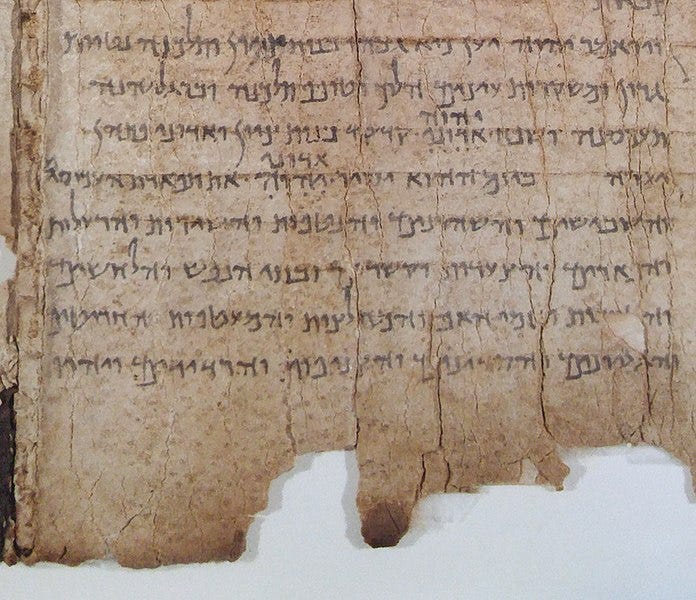 ויואמר יהוה יען כיא גבהו בנות ציון תלכנה נטוות
גרון ומשקרות עיניהן הלוך וטופף תלכנה וברגליהנה
יהוה
תעכסנה ושפח אדוני קודקוד בנות ציון ואדוני פתהן
אדוני
יערה ביום ההוא יסיר יהוה את תפארת העכיסים
והשבישים והשהרונים והנטפות והשירות והרעלות
והפארים והצעדות והקשרים ובתי הנפש והלחשים
והטבעות ונזמי האף והמחלצות והמעטפות
והגליונים והסדינים והצניפות והרדידים ויהיו